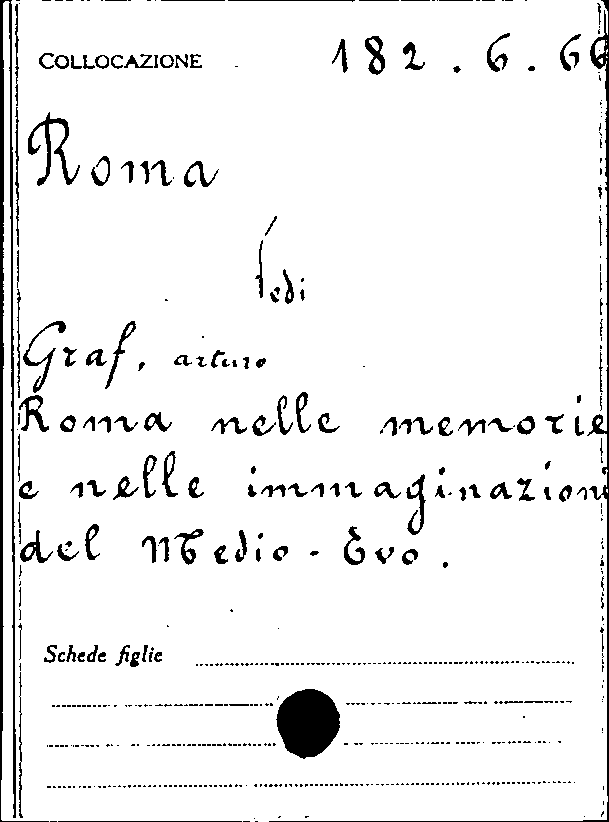 COLLOCAZIONE 182.6.66
Roma
Vedi
Graf, arturo
Roma nelle memorie
e nelle immaginazioni
del Medio-Evo.
Schede figlie